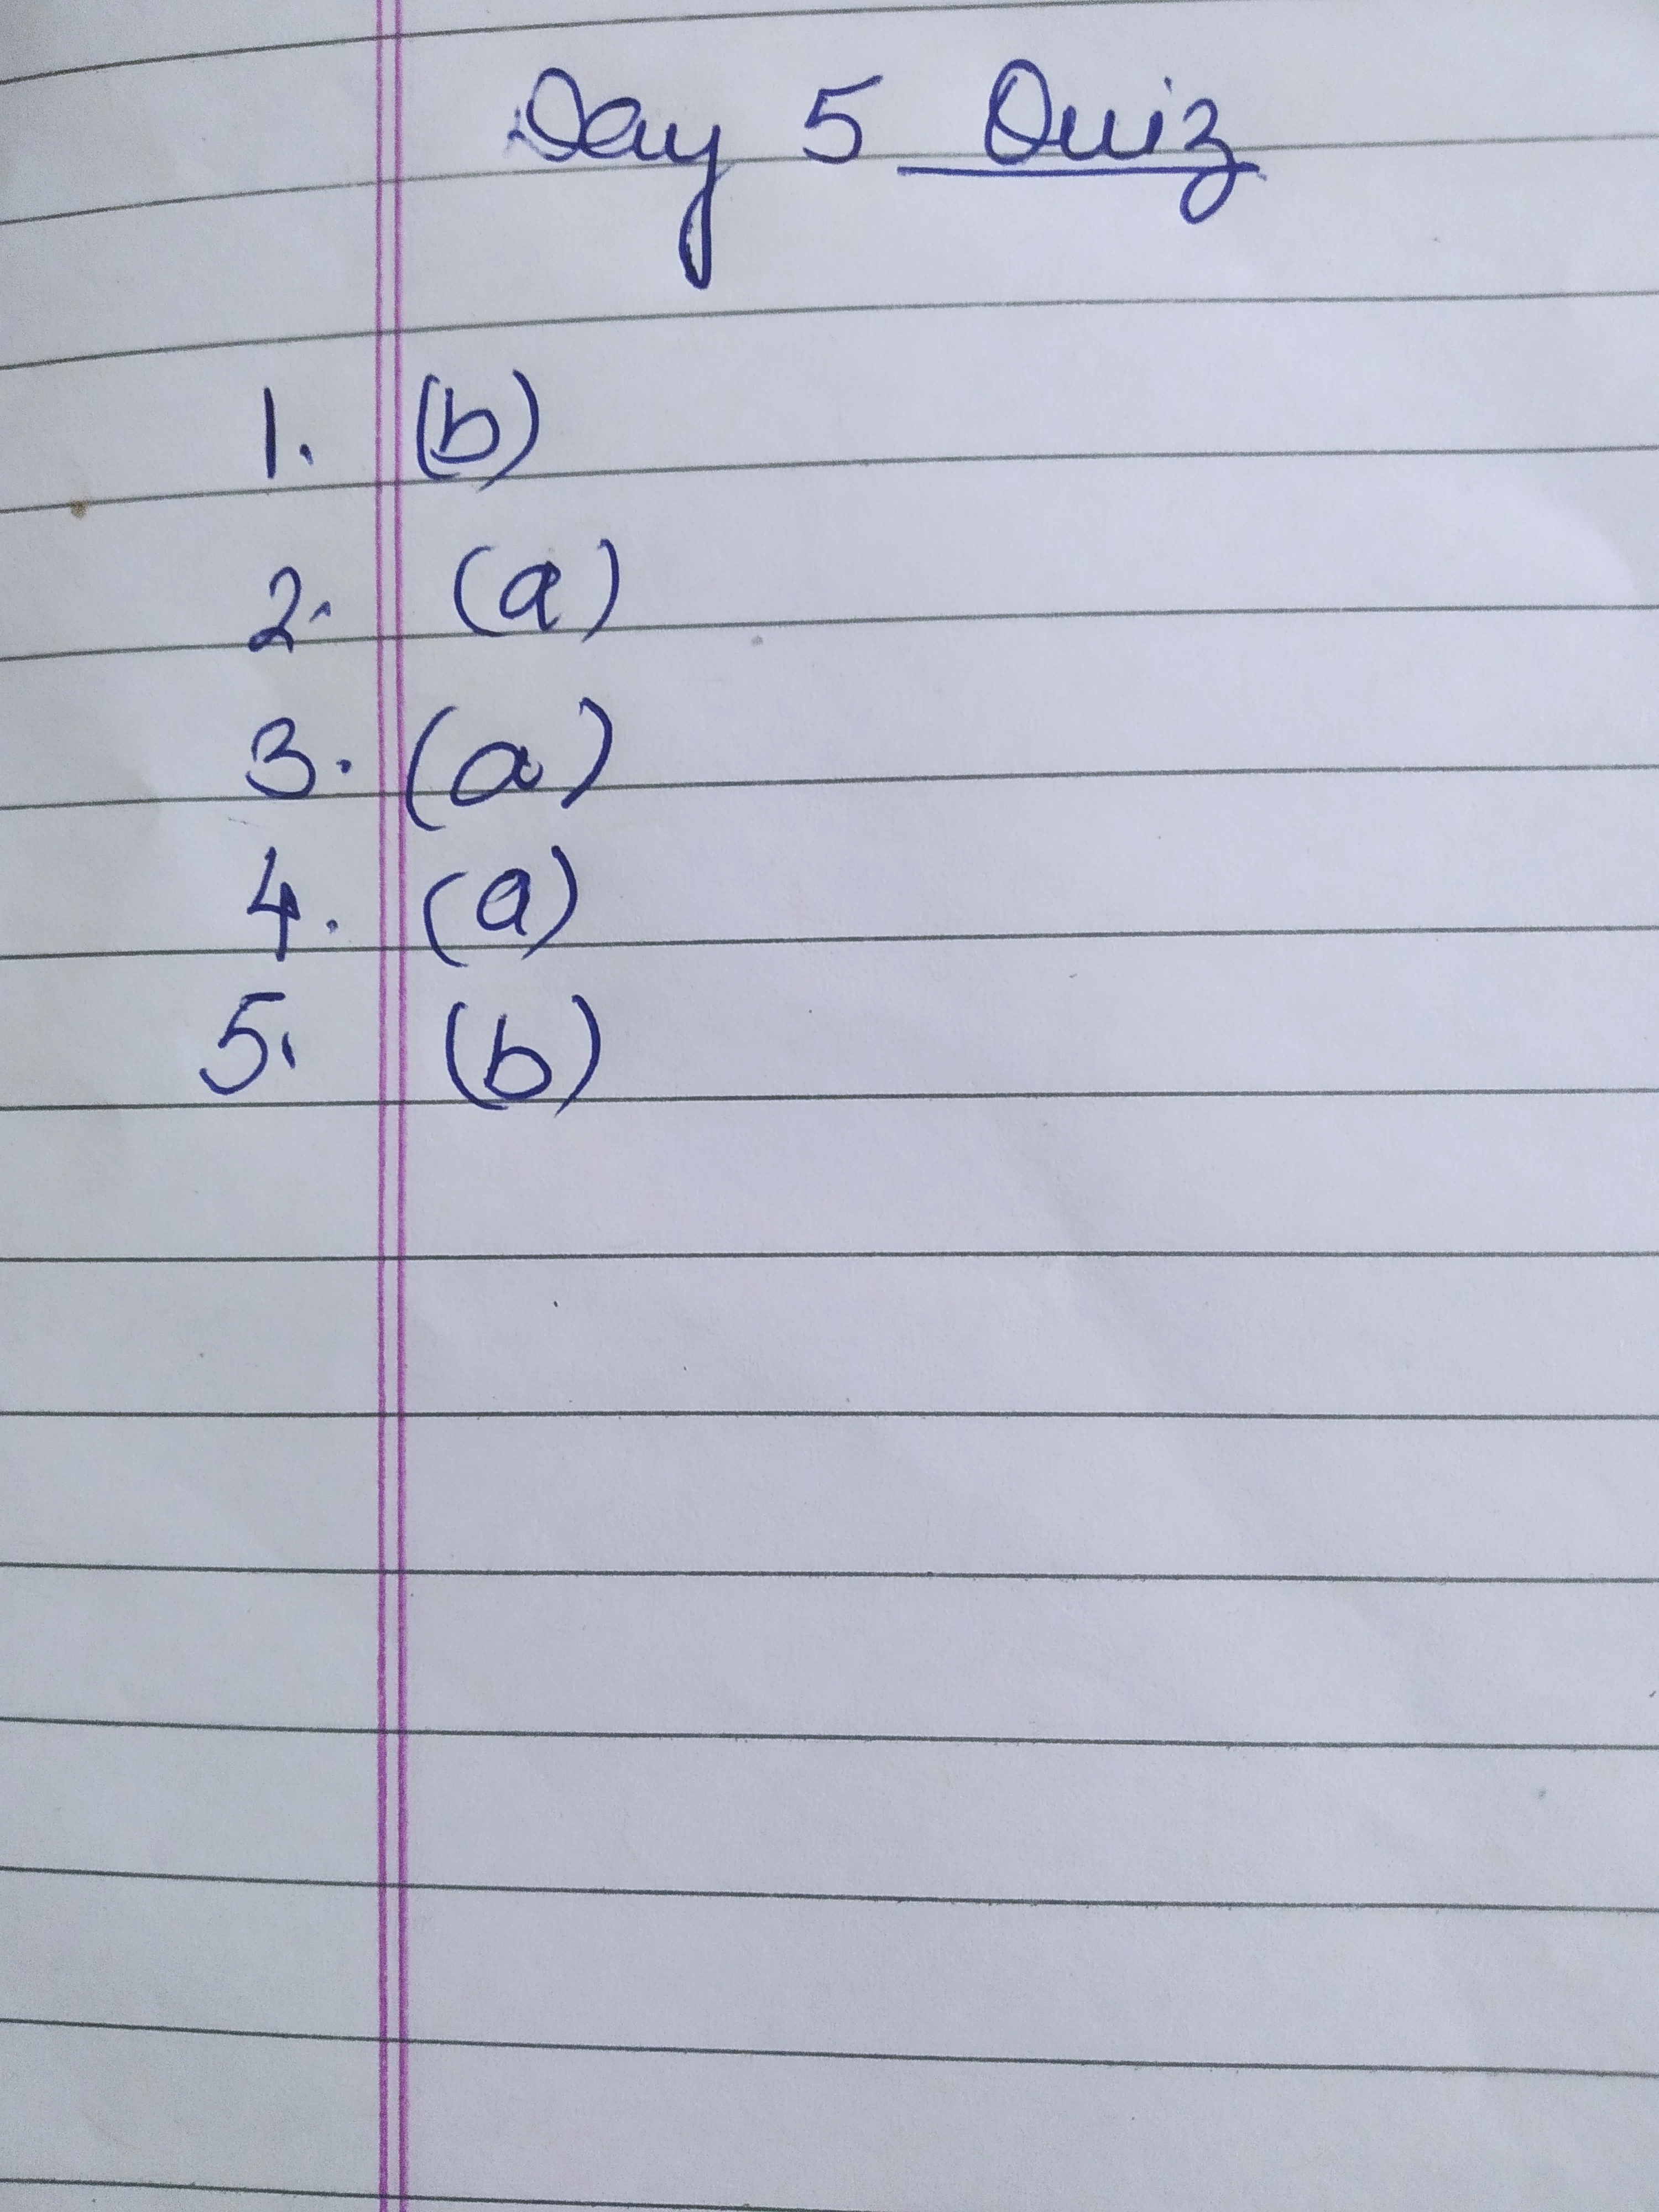 Day 5 Quiz
1. (b)
2. (a)
3. (a)
4. (a)
5. (b)